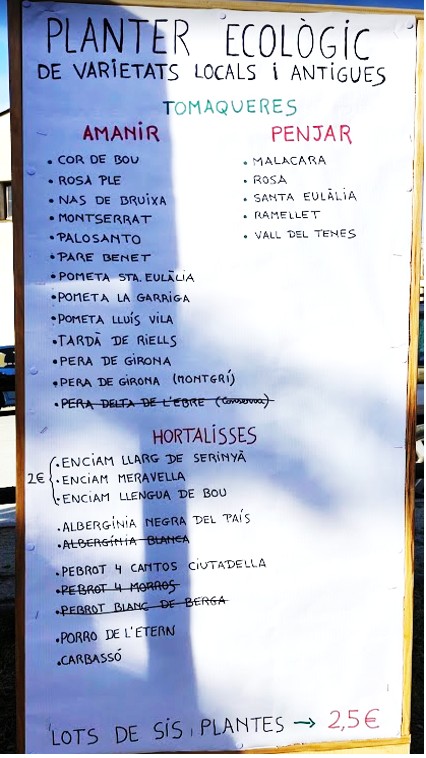 PLANTER ECOLÒGIC
DE VARIETATS LOCALS i ANTIGUES
TOMAQUERES
AMANIR
• COR DE BOU
• ROSA PLE
• NAS DE BRUIXA
• MONTSERRAT
• PALOSANTO
• PARE BENET
• POMETA STA. EULÀLIA
• POMETA LA GARRIGA
• POMETA LLUÍS VILA
• TARDÀ DE RIELLS
• PERA DE GIRONA
• PERA DE GIRONA (MONTGRÍ)
• PERA DELTA DE L'EBRE (Conserva)
PENJAR
• MALACARA
• ROSA
• SANTA EULÀLIA
• RAMELLET
• VALL DEL TENES
HORTALISSES
2€
• ENCIAM LLARG DE SERINYÀ
• ENCIAM MERAVELLA
• ENCIAM LLENGUA DE BOU
• ALBERGÍNIA NEGRA DEL PAÍS
• ALBERGÍNIA BLANCA
• PEBROT 4 CANTOS CIUTADELLA
• PEBROT 4 MORROS
• PEBROT BLANC DE BERGA
• PORRO DE L'ETERN
• CARBASSÓ
LOTS DE SIS PLANTES → 2,5€